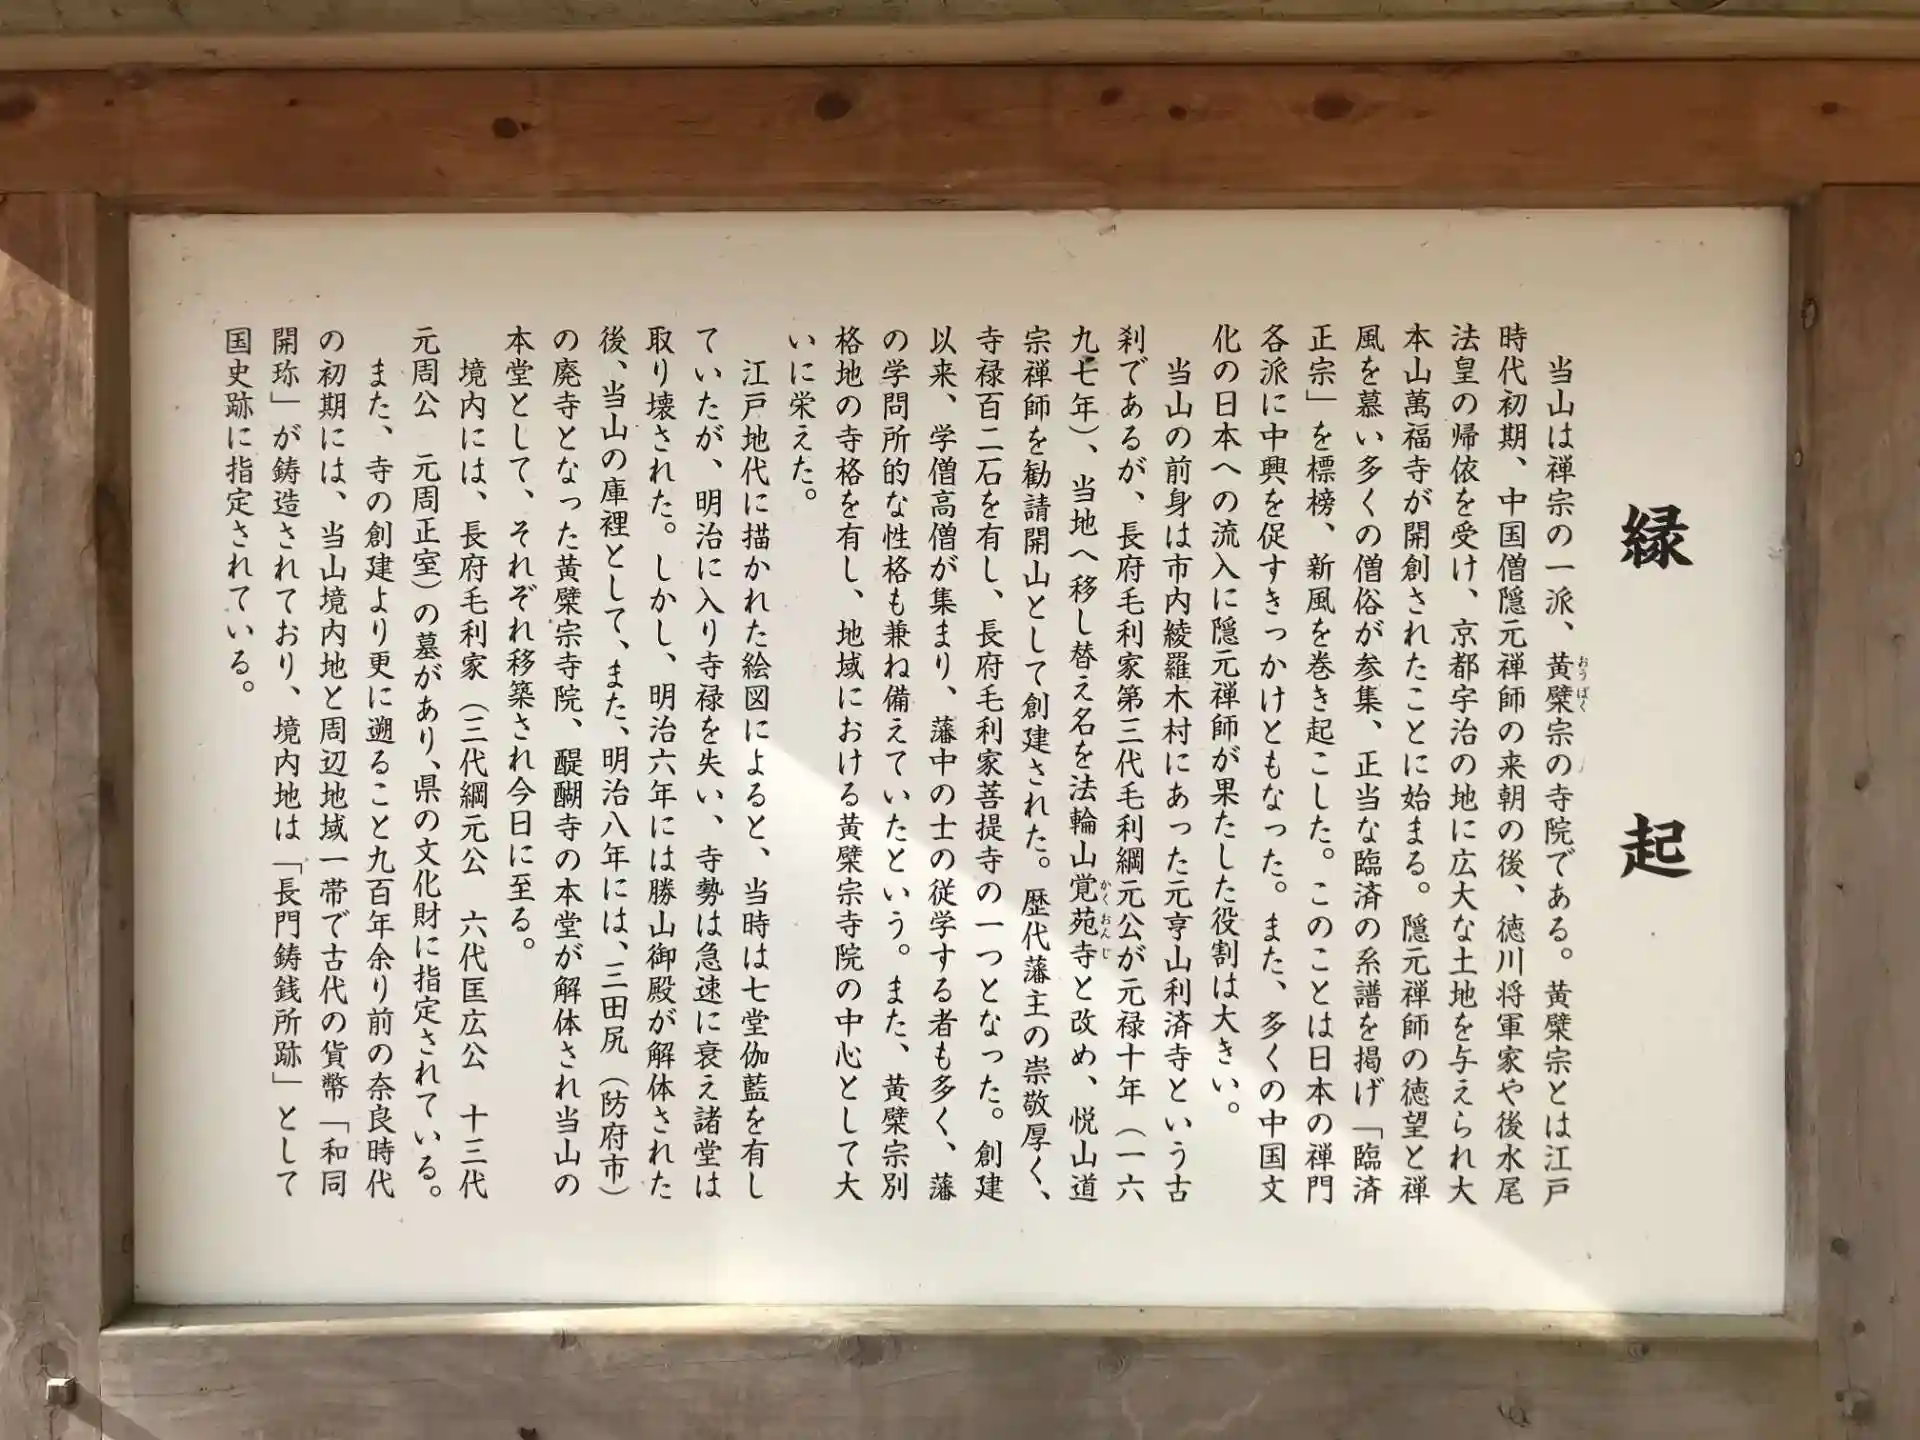 縁起
当山は禅宗の一派、黄檗宗の寺院である。黄檗宗とは江戸
時代初期、中国僧隠元禅師の来朝の後、徳川将軍家や後水尾
法皇の帰依を受け、京都宇治の地に広大な土地を与えられ大
本山萬福寺が開創されたことに始まる。隠元禅師の徳望と禅
風を慕い多くの僧俗が参集、正当な臨済の系譜を掲げ「臨済
正宗」を標榜、新風を巻き起こした。このことは日本の禅門
各派に中興を促すきっかけともなった。また、多くの中国文
化の日本への流入に隠元禅師が果たした役割は大きい。
当山の前身は市内綾羅木村にあった元亨山利済寺という古
刹であるが、長府毛利家第三代毛利綱元公が元禄十年（一六
九七年）、当地へ移し替え名を法輪山覚苑寺と改め、悦山道
宗禅師を勧請開山として創建された。歴代藩主の崇敬厚く、
寺禄百二石を有し、長府毛利家菩提寺の一つとなった。創建
以来、学僧高僧が集まり、藩中の士の従学する者も多く、藩
の学問所的な性格も兼ね備えていたという。また、黄檗宗別
格地の寺格を有し、地域における黄檗宗寺院の中心として大
いに栄えた。
江戸地代に描かれた絵図によると、当時は七堂伽藍を有し
ていたが、明治に入り寺禄を失い、寺勢は急速に衰え諸堂は
取り壊された。しかし、明治六年には勝山御殿が解体された
後、当山の庫裡として、また、明治八年には、三田尻（防府市）
の廃寺となった黄檗宗寺院、醍醐寺の本堂が解体され当山の
本堂として、それぞれ移築され今日に至る。
境内には、長府毛利家（三代綱元公　六代匡広公　十三代
元周公　元周正室）の墓があり、県の文化財に指定されている。
また、寺の創建より更に遡ること九百年余り前の奈良時代
の初期には、当山境内地と周辺地域一帯で古代の貨幣「和同
開珎」が鋳造されており、境内地は「長門鋳銭所跡」として
国史跡に指定されている。